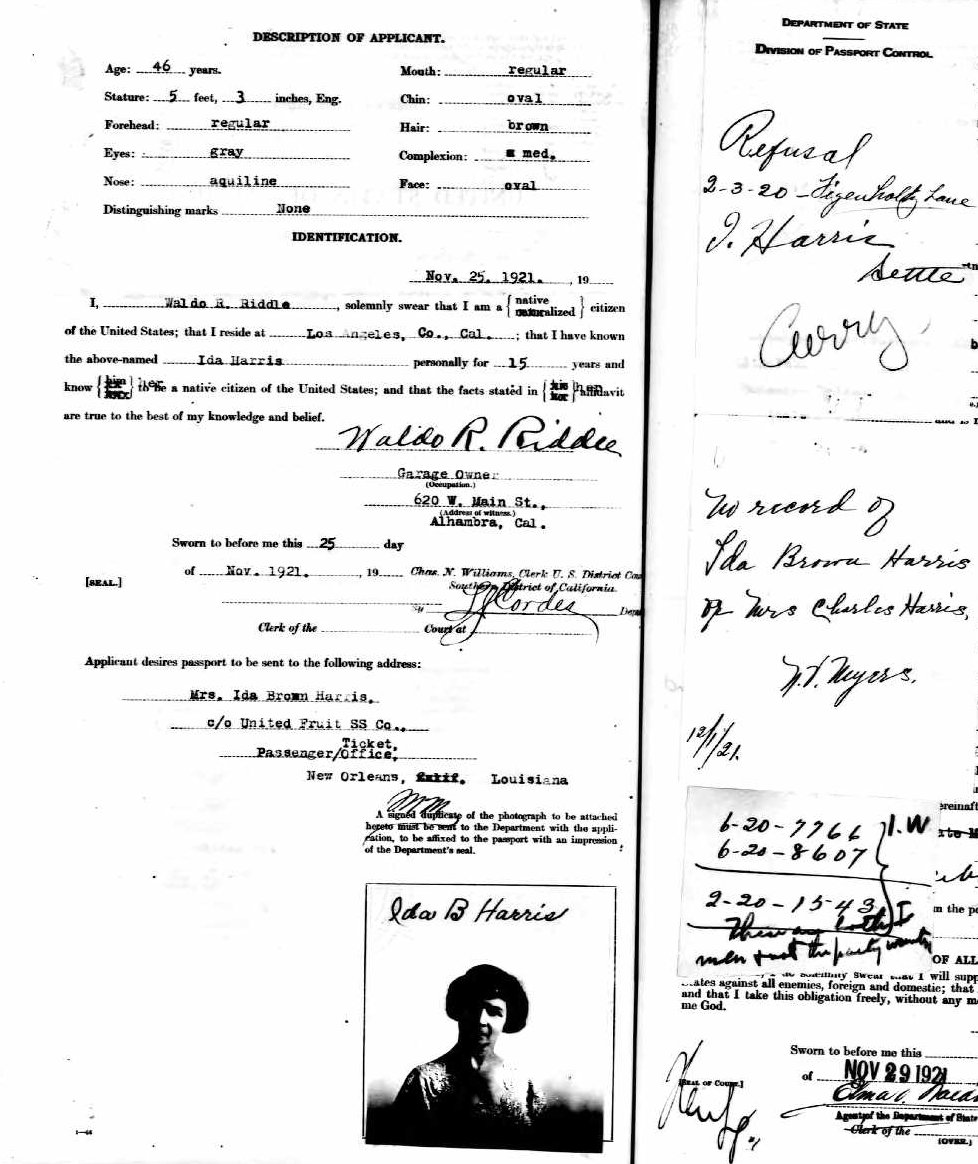 DESCRIPTION OF APPLICANT.
Age: 46 years.
Mouth: regular
Stature: 5 feet, 3 inches, Eng.
Chin: oval
Forehead: regular
Hair: brown
Eyes: gray
Complexion: med.
Nose: aquiline
Face: oval
Distinguishing marks None
IDENTIFICATION.
Nov. 25, 1921. , 19
I, Waldo R. Riddle, solemnly swear that I am a { native naturalized } citizen
of the United States; that I reside at Los Angeles, Co., Cal. ; that I have known
the above-named Ida Harris personally for 15 years and
know { him } her to be a native citizen of the United States; and that the facts stated in { his her } her affidavit
are true to the best of my knowledge and belief.
Waldo R. Riddle
Garage Owner
(Occupation.)
620 W. Main St.,
(Address of witness.)
Alhambra, Cal.
Sworn to before me this 25 day
of Nov. 1921. , 19
Chas. N. Williams, Clerk U. S. District Cou
Southern District of California.
[SEAL.]
By Cordes Depu
Clerk of the Court at
Applicant desires passport to be sent to the following address:
Mrs. Ida Brown Harris,
c/o United Fruit SS Co.,
Ticket,
Passenger/Office,
New Orleans, Louisiana
A signed duplicate of the photograph to be attached
hereto must be sent to the Department with the appli-
cation, to be affixed to the passport with an impression
of the Department's seal.
Ida B Harris
DEPARTMENT OF STATE
DIVISION OF PASSPORT CONTROL
Refusal
2-3-20 - Lane
I. Harris
Settle
Curry
No record of
Ida Brown Harris
or Mrs Charles Harris,
Myers.
12/1/21.
6-20-7766
6-20-8607 } I.W
2-20-1543 } I
These are both
men & not the party wanted
OF ALL
solemnly swear that I will supp
States against all enemies, foreign and domestic; that
and that I take this obligation freely, without any m
me God.
Sworn to before me this
[SEAL OF COURT.]
of NOV 29 1921
Agent of the Department of State
Clerk of the
(OVER.)